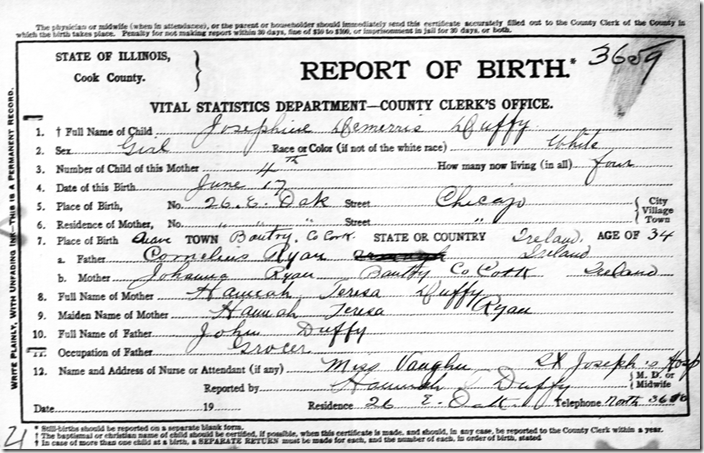 The physician or midwife (when in attendance), or the parent or householder should immediately send this certificate accurately filled out to the County Clerk of the County in
which the birth takes place. Penalty for not making report within 30 days, fine of $10 to $100, or imprisonment in jail for 30 days, or both.
STATE OF ILLINOIS,
Cook County.
REPORT OF BIRTH.* 3659
VITAL STATISTICS DEPARTMENT—COUNTY CLERK'S OFFICE.
WRITE PLAINLY, WITH UNFADING INK. THIS IS A PERMANENT RECORD.
1. † Full Name of Child Josephine Demerris Duffy
2. Sex Girl Race or Color (if not of the white race) White
3. Number of Child of this Mother 4th How many now living (in all) four
4. Date of this Birth June 17
5. Place of Birth, No. 26. E. Oak Street Chicago { City
6. Residence of Mother, No. " " " Street " Village Town
7. Place of Birth TOWN Bantry, Co Cork. STATE OR COUNTRY Ireland. AGE OF 34
a. Father Cornelius Ryan Ireland
b. Mother Johanna Ryan Bantry Co Cork Ireland
8. Full Name of Mother Hannah Teresa Duffy
9. Maiden Name of Mother Hannah Teresa Ryan
10. Full Name of Father John Duffy
11. Occupation of Father Grocer
12. Name and Address of Nurse or Attendant (if any) Miss Vaughn St Joseph's Hosp
Reported by Hannah Duffy { M. D. or Midwife
Date 19 Residence 26 E. Oak. Telephone North
* Still-births should be reported on a separate blank form.
† The baptismal or christian name of child should be certified, if possible, when this certificate is made, and should, in any case, be reported to the County Clerk within a year.
‡ In case of more than one child at a birth, a SEPARATE RETURN must be made for each, and the number of each, in order of birth, stated